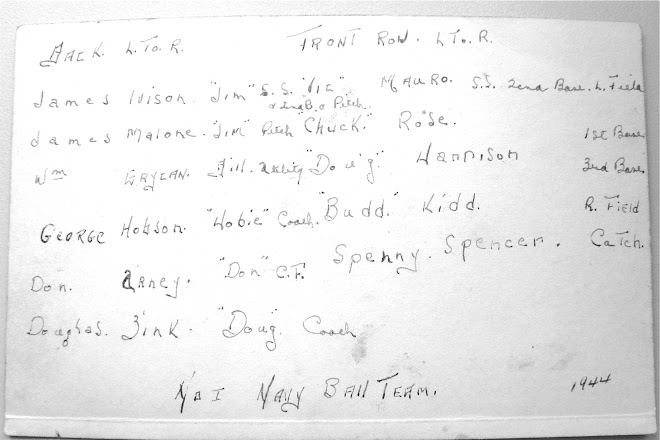 BACK. L. To. R. FRONT ROW. L To. R.
James Ivison. "Jim" S.S. "Vic" MAURO. S.S. 2end Base. L. Field
& 2nd B. & Pitch.
James Malone. "Jim" Pitch "Chuck." Rose. 1st Base
Wm Bill. "Doug" Harrison 3rd Base.
GEORGE Hobson. "Hobie" Coach. "Budd." Kidd. R. Field
Don. "Don" C.F. Spenny. Spencer. Catch.
Douglas. Zink. "Doug". Coach
No I Navy Ball Team. 1944